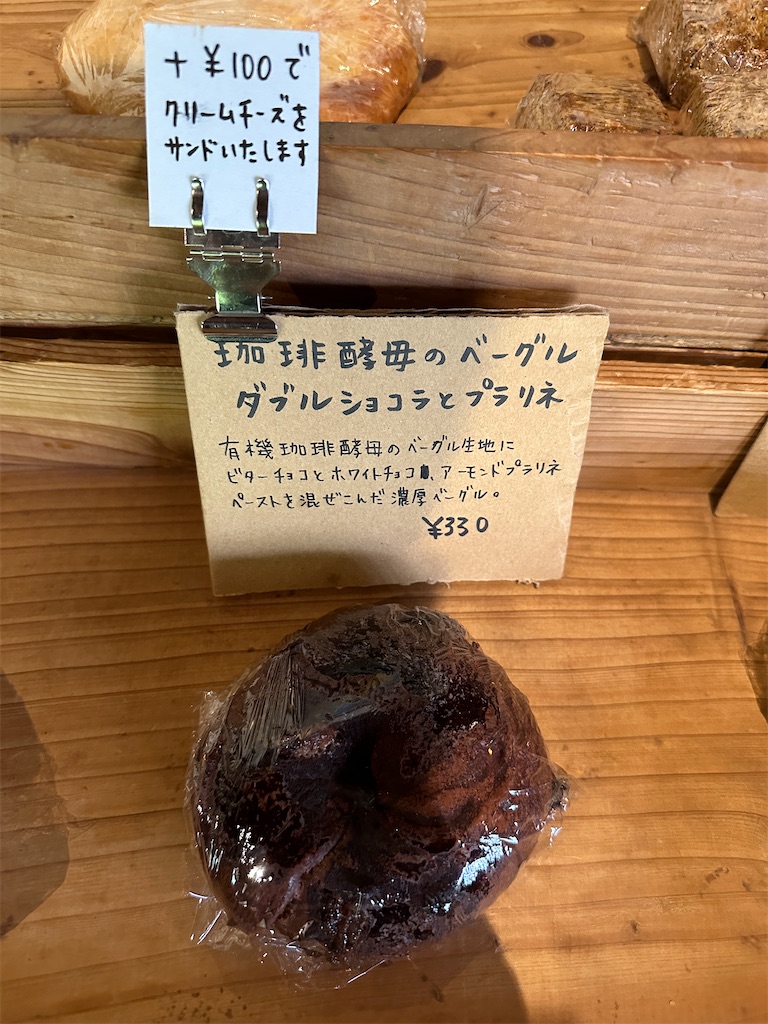 + ¥100で
クリームチーズを
サンドいたします
珈琲酵母のベーグル
ダブルショコラとプラリネ
有機珈琲酵母のベーグル生地に
ビターチョコとホワイトチョコ、アーモンドプラリネ
ペーストを混ぜこんだ濃厚ベーグル。
¥330